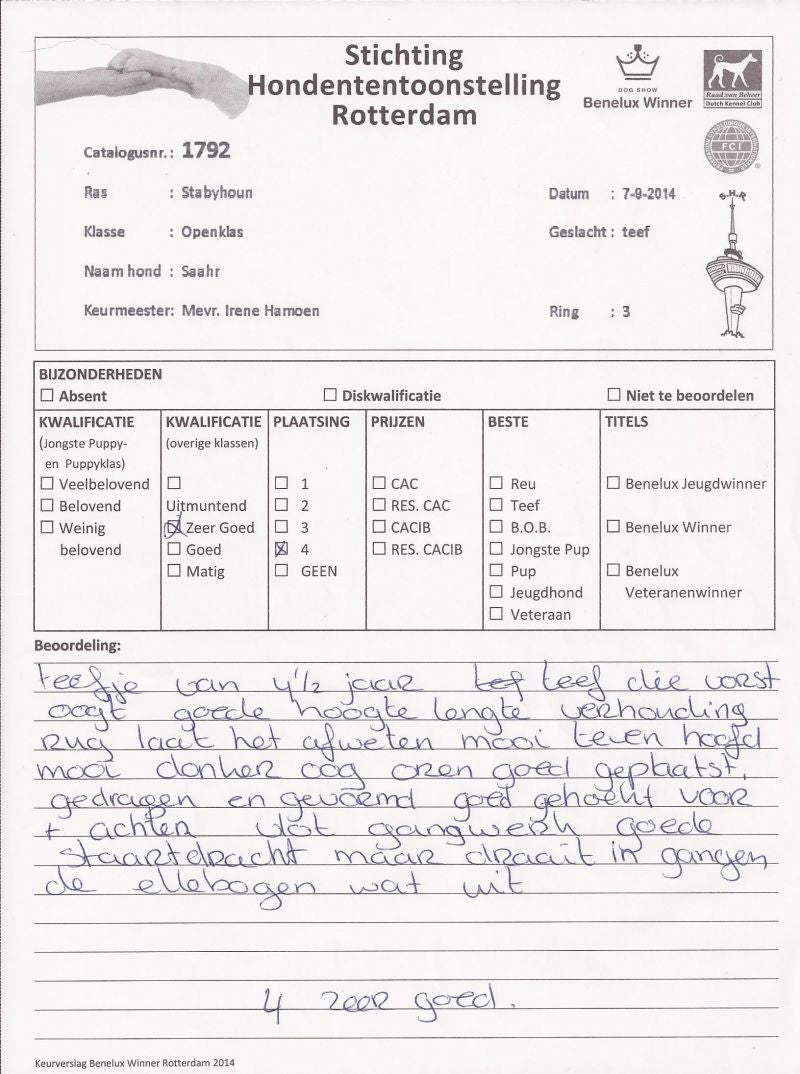 Stichting
Hondententoonstelling
Rotterdam
DOG SHOW
Benelux Winner
Raad van Beheer
Dutch Kennel Club
FCI
S.H.R
Catalogusnr.: 1792
Ras : Stabyhoun
Datum : 7-9-2014
Klasse : Openklas
Geslacht : teef
Naam hond : Saahr
Keurmeester: Mevr. Irene Hamoen
Ring : 3
BIJZONDERHEDEN
☐ Absent ☐ Diskwalificatie ☐ Niet te beoordelen
KWALIFICATIE
(Jongste Puppy-
en Puppyklas)
☐ Veelbelovend
☐ Belovend
☐ Weinig
belovend
KWALIFICATIE
(overige klassen)
☐
Uitmuntend
☒ Zeer Goed
☐ Goed
☐ Matig
PLAATSING
☐ 1
☐ 2
☐ 3
☒ 4
☐ GEEN
PRIJZEN
☐ CAC
☐ RES. CAC
☐ CACIB
☐ RES. CACIB
BESTE
☐ Reu
☐ Teef
☐ B.O.B.
☐ Jongste Pup
☐ Pup
☐ Jeugdhond
☐ Veteraan
TITELS
☐ Benelux Jeugdwinner
☐ Benelux Winner
☐ Benelux
Veteranenwinner
Beoordeling:
teefje van 4½ jaar teef die vorst
oogt goede hoogte lengte verhouding
rug laat het afweten mooi teven hoofd
mooi donker oog oren goed geplaatst,
gedragen en gevormd goed gehoekt voor
+ achter vlot gangwerk goede
staartdracht maar draait in gangen
de ellebogen wat uit
4 zeer goed.
Keurverslag Benelux Winner Rotterdam 2014